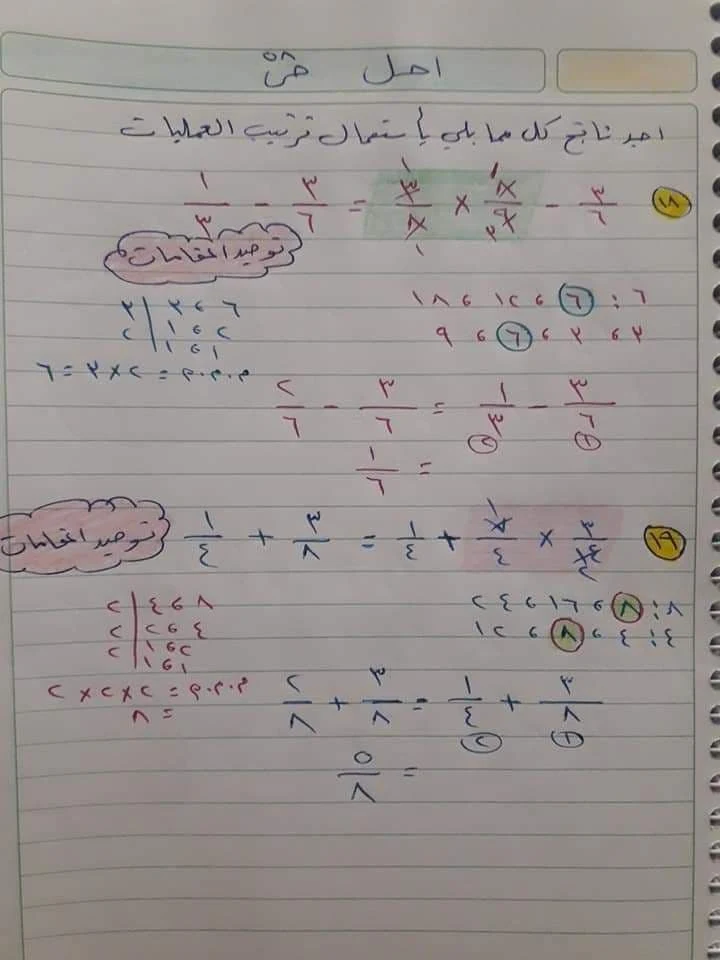 احل ص ٥٨
اجد ناتج كل مما يلي بأستعمال ترتيب العمليات
١٨ ٣/٦ - × = ٣/٦ - ١/٣
توحيد المقامات
٦ : ٦ و ١٢ و ١٨
٣ و ٣ و ٦ و ٩
٦ و ٣ | ٣
٢ و ١ | ٢
١ و ١
م.م.م = ٢ × ٣ = ٦
٣/٦ - ١/٣ = ٣/٦ - ٢/٦
١ ٢
= ١/٦
١٩ × + ١/٤ = ٣/٨ + ١/٤
توحيد المقامات
٨ : ٨ و ١٦ و ٢٤
٤ : ٤ و ٨ و ١٢
٨ و ٤ | ٢
٤ و ٢ | ٢
٢ و ١ | ٢
١ و ١
م.م.م = ٢ × ٢ × ٢
= ٨
٣/٨ + ١/٤ = ٣/٨ + ٢/٨
١ ٢
= ٥/٨